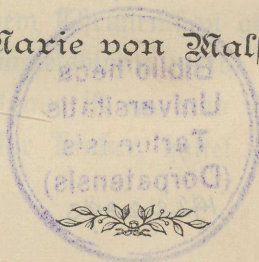 Marie von Mals
Bibliotheca
Universitatis
Tartuensis
(Dorpatensis)